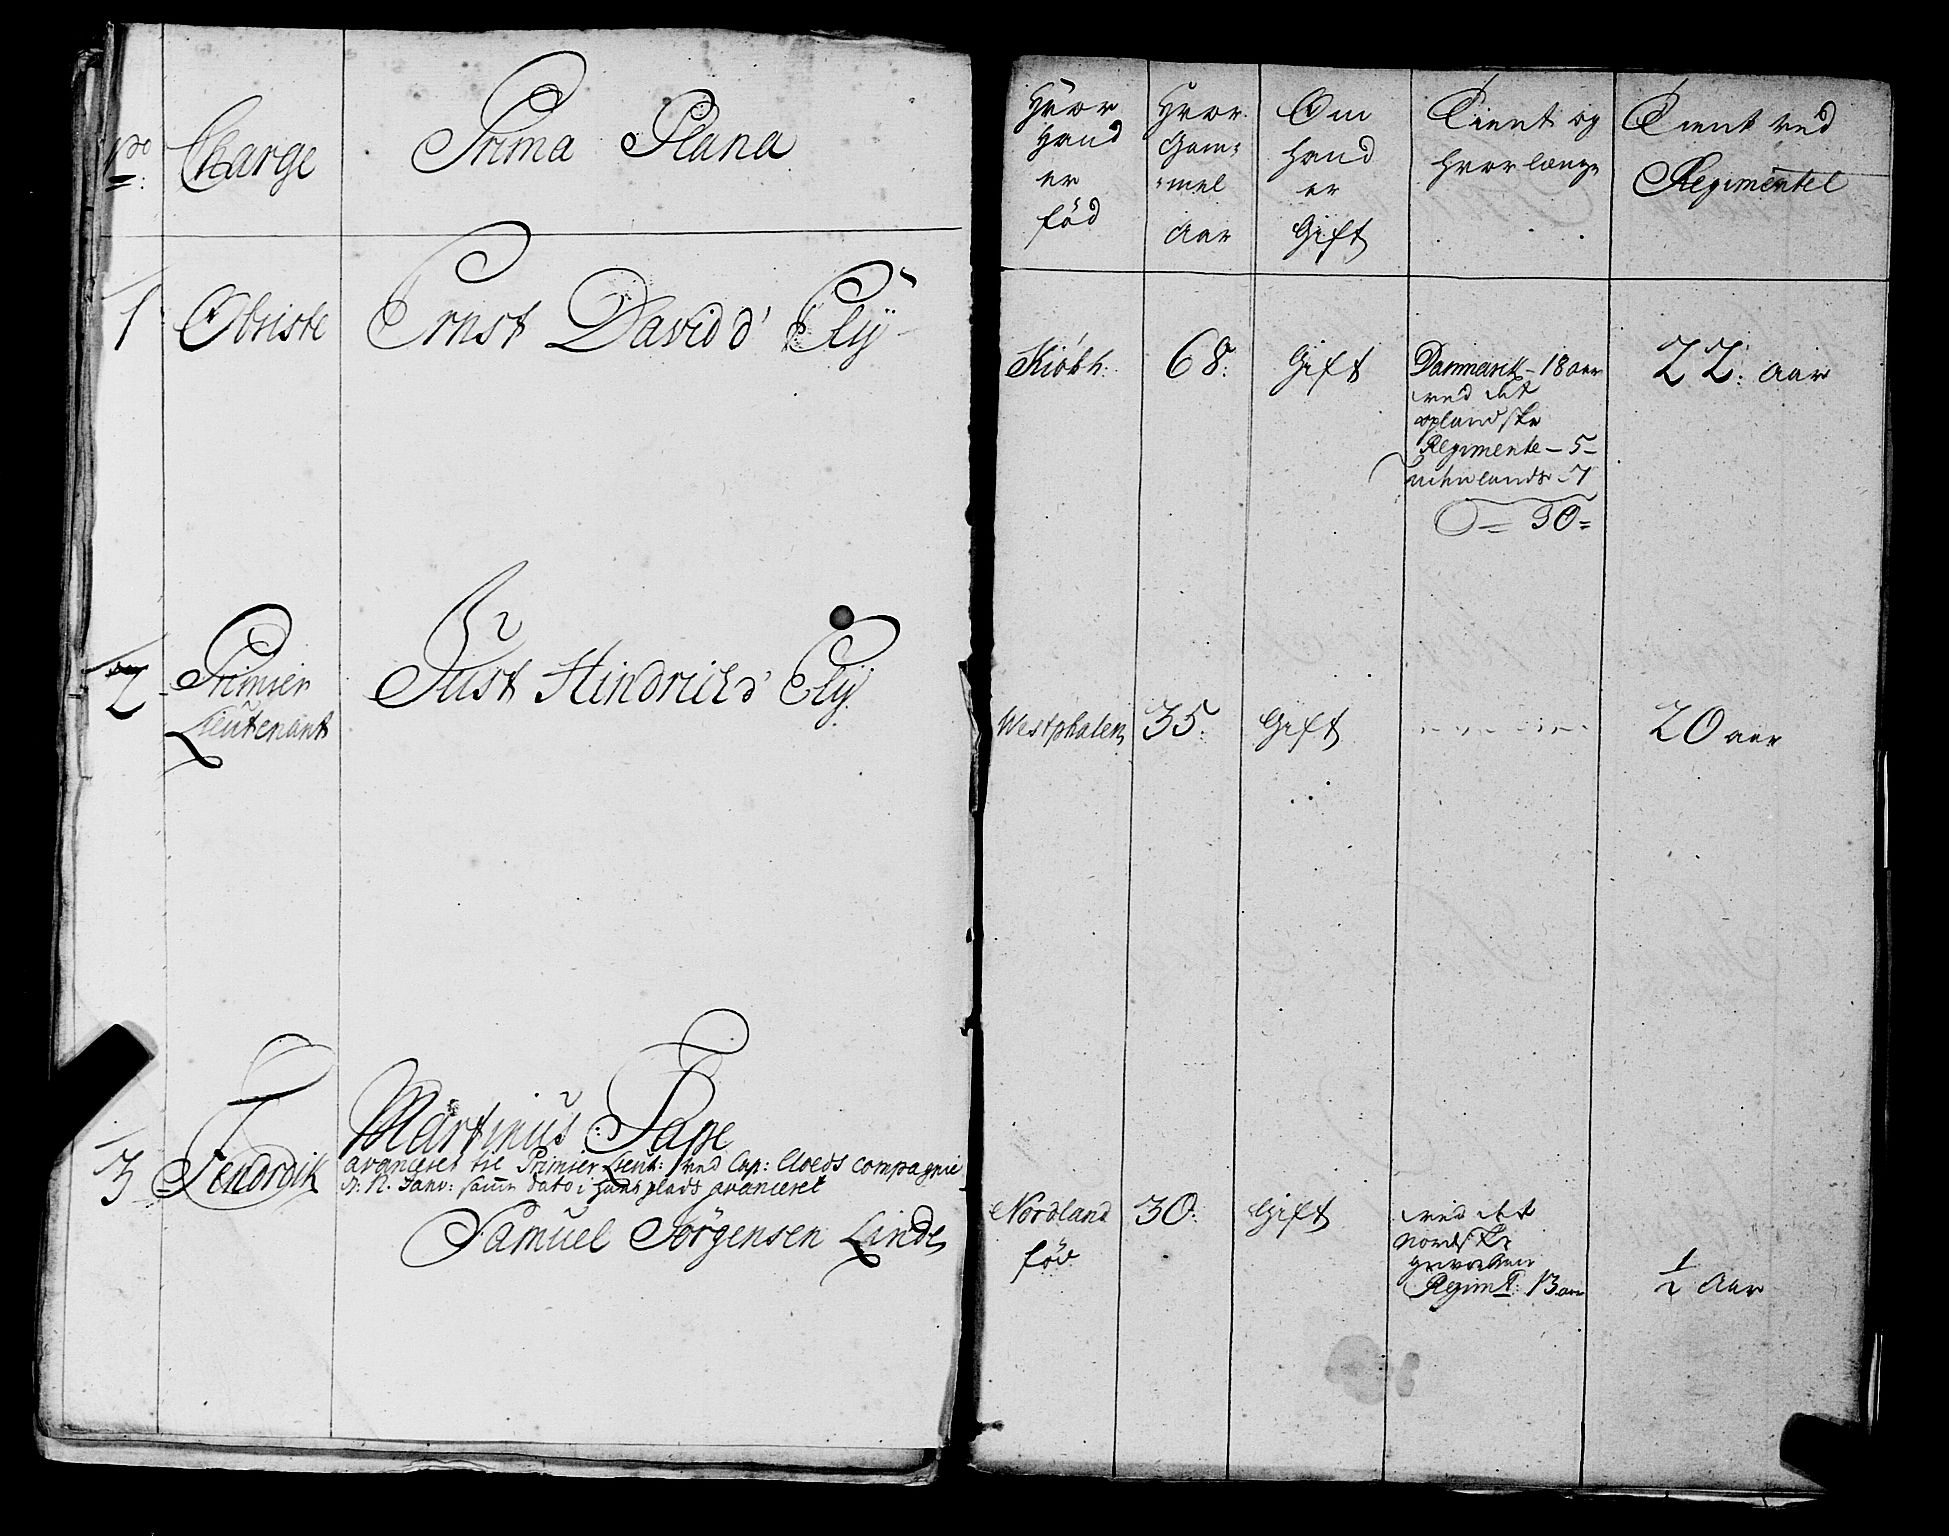 No: Charge Prima Plana
Hvor Hand er fød
Hvor Gam: :mel Aar
Om Hand er Gift
Tient og hvorlænge
Tient ved Regimentet
1 Obriste Ernst David d' Elÿ
Kiøbh: 68: Gift
Danmark – 18 aar
ved det
oplandske
Regimente – 5 –
udenlands – 7
= 30 =
22: aar
2 Primier Lieutenant Just Hindrich d' Elÿ
Westphalen 35: Gift 20 aar
3 Fendrik Martinus Fage
avanceret til Primier Lieut: ved Cap: Cloeds compagnie
Janv: samme dato i hans plads avanceret
Samuel Jørgensen Linde
Nordland fød 30: Gift
ved det
Nordske
gevorbne
Regimt: 13 aar
1/2 Aar